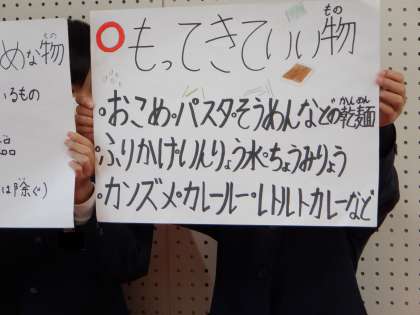 めな物
もの
いるもの
品
は除ぐ)
⭕もってきていい物
もの
・おこめ・パスタ・そうめんなどの乾麺
かんめん
・ふりかけ・いんりょう水・ちょうみりょう
・カンズメ・カレールー・レトルトカレーなど